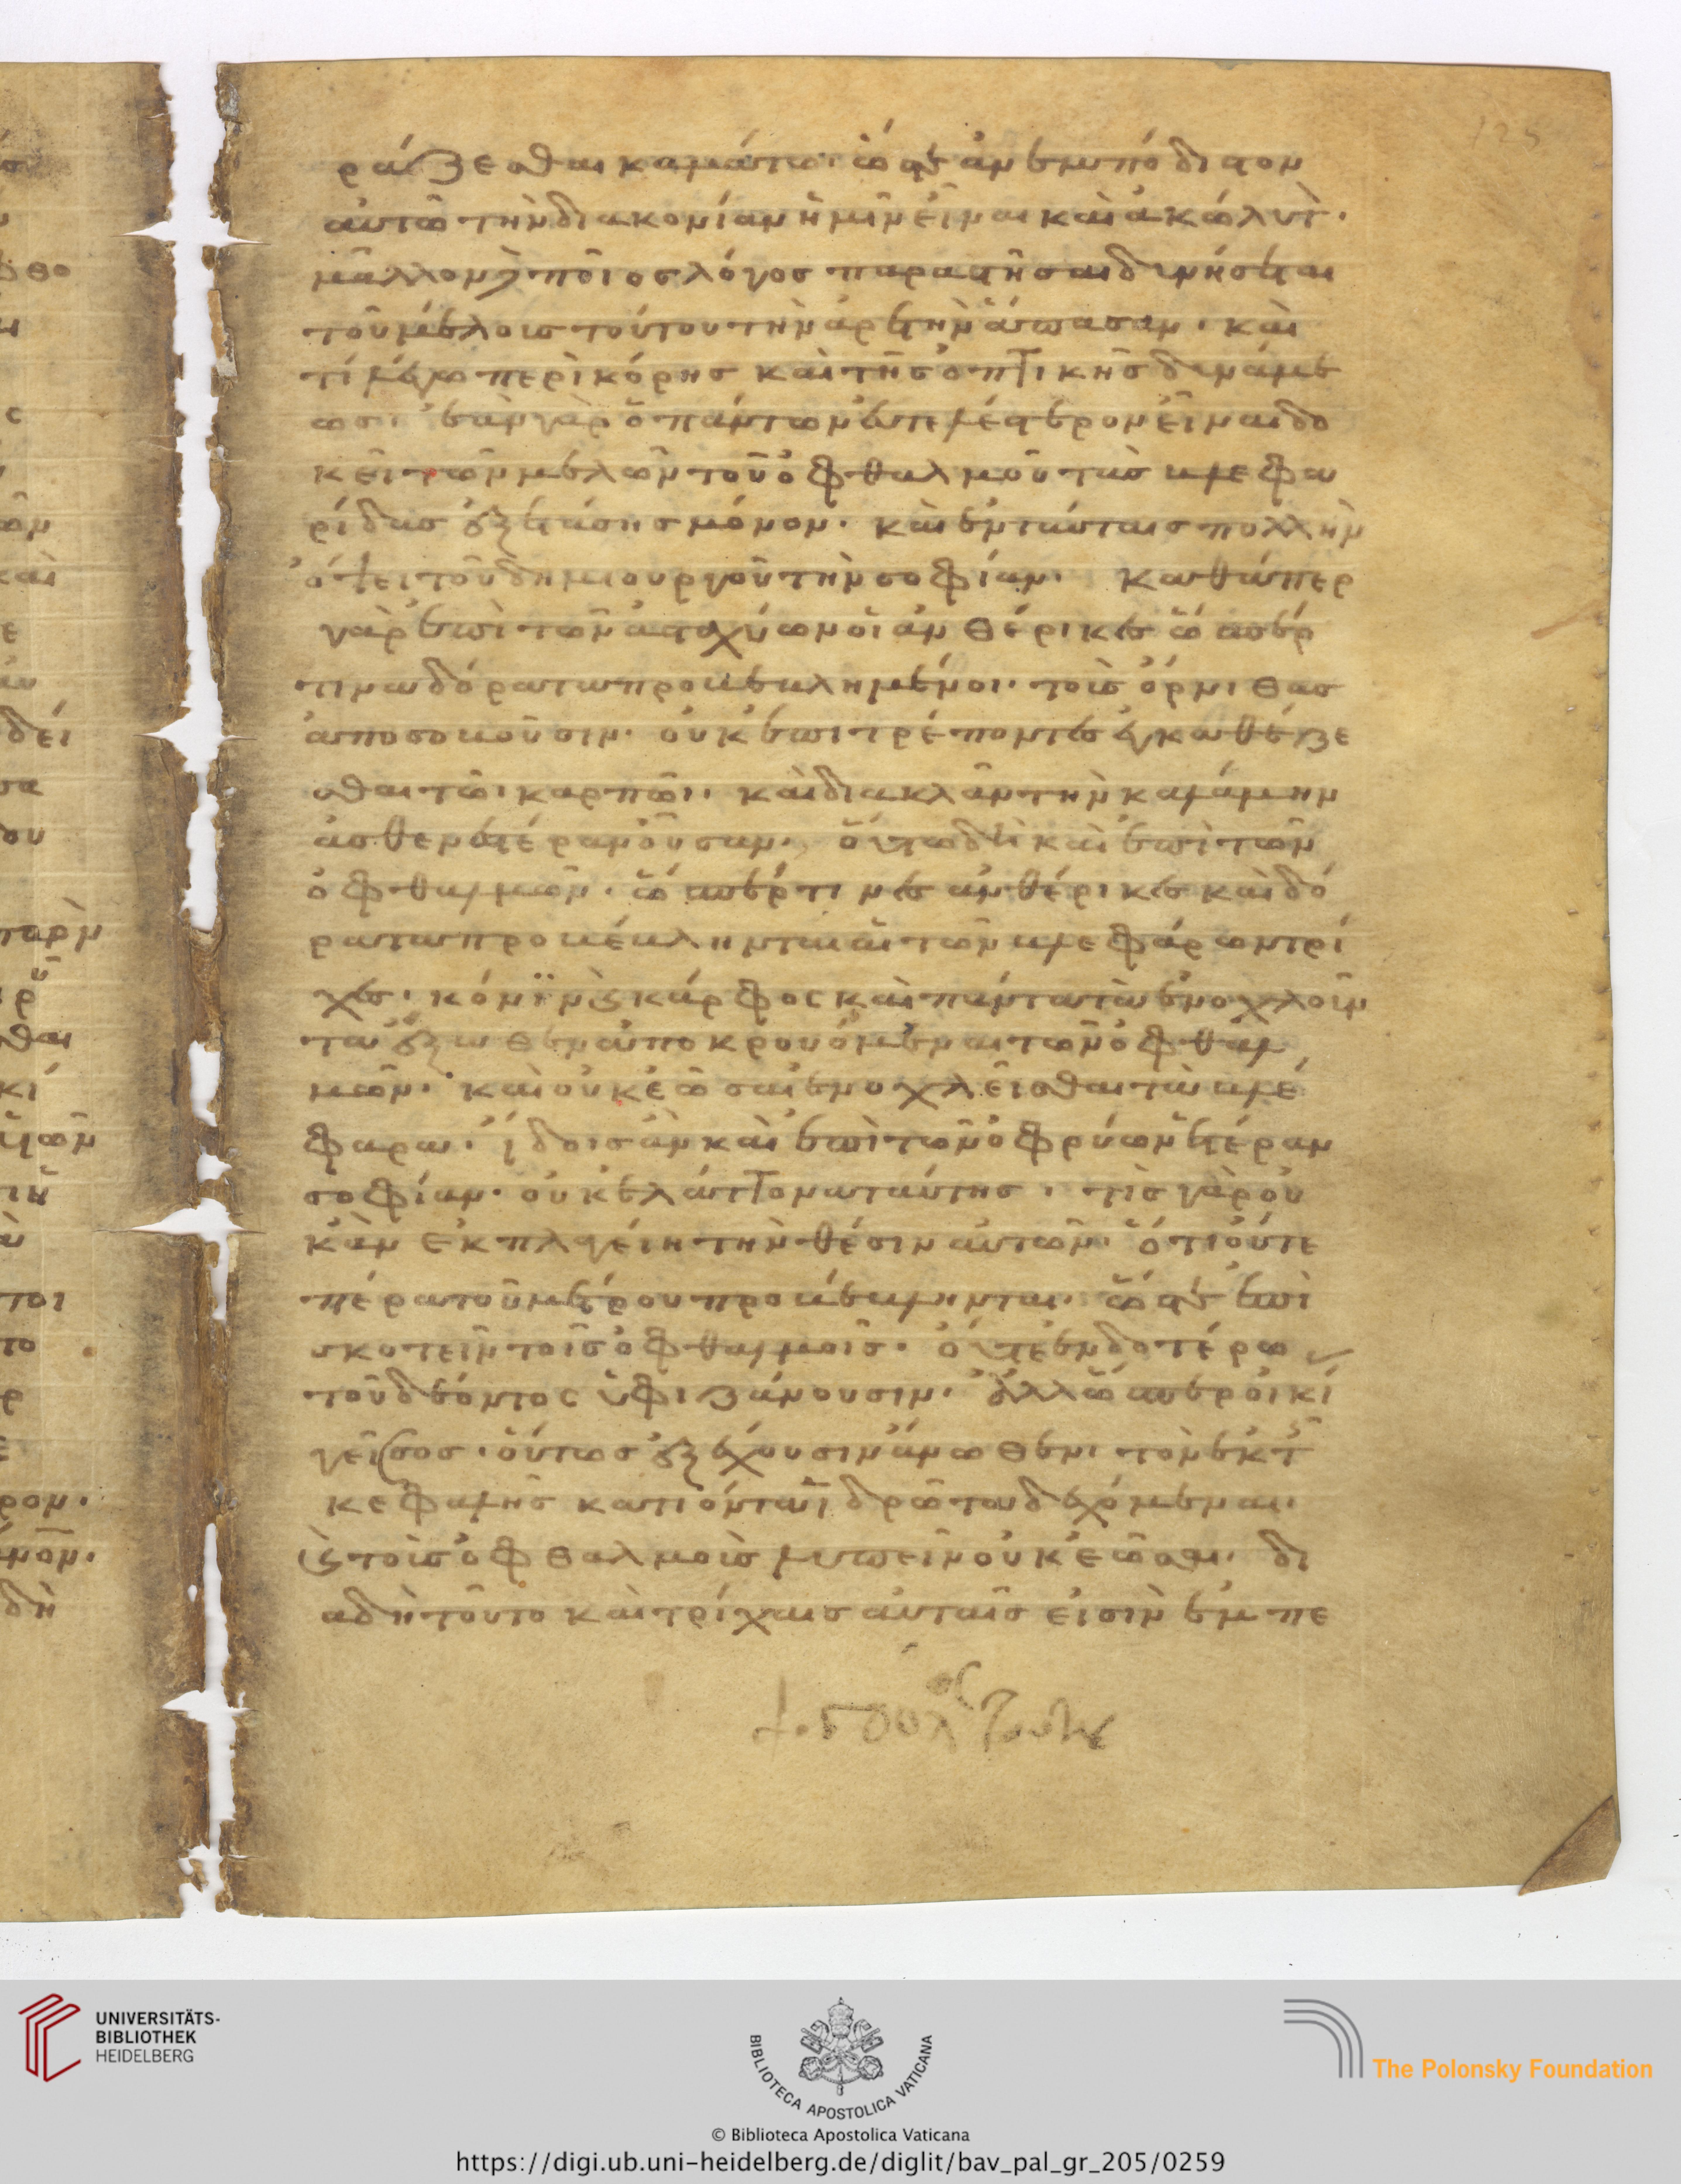 ράζεσθαι καμάτω· ὥστε ἀνεμπόδιστον
αὐτῶ τὴν διακονίαν ἡμῖν εἶναι καὶ ἀκώλυτ·
μᾶλλον δὲ ποῖος λόγος παραστῆσαι δυνήσεται
τοῦ μέλους τούτου τὴν ἀρετὴν ἅπασαν· καὶ
τί λέγω περὶ κόρης καὶ τῆς ὀπτικῆς δυνάμε
ως· ἐὰν γὰρ ὃ πάντων εὐτελέστερον εἶναι δο
κεῖ τῶν μελῶν τοῦ ὀφθαλμοῦ τὰς βλεφα
ρίδας ἐξετάσης μόνον· καὶ ἐν ταύταις πολλὴν
ὄψει τοῦ δημιουργοῦ τὴν σοφίαν· καθάπερ
γὰρ ἐπὶ τῶν ἀσταχύων οἱ ἀνθέρικες ὥσπερ
τινα δόρατα προβεβλημένοι· τοὺς ὄρνιθας
ἀποσοβοῦσιν· οὐκ ἐπιτρέποντες ἐγκαθέζε
σθαι τῶ καρπῶ· καὶ διακλᾶν τὴν καλάμην
ἀσθενεστέραν οὖσαν· οὕτω δὴ καὶ ἐπὶ τῶν
ὀφθαλμῶν· ὥσπερ τινες ἀνθέρικες καὶ δό
ρατα προβέβληνται αἱ τῶν βλεφάρων τρί
χες· κόνιν καὶ κάρφος καὶ πάντα τὰ ἐνοχλοῦν
τα ἔξωθεν ἀποκρουόμεναι τῶν ὀφθαλ
μῶν· καὶ οὐκ ἐῶσαι ἐνοχλεῖσθαι τὰ βλέ
φαρα· ἴδοις ἂν καὶ ἐπὶ τῶν ὀφρύων ἑτέραν
σοφίαν· οὐκ ἐλάττονα ταύτης· τίς γὰρ οὐ
κ ἂν ἐκπλαγείη τὴν θέσιν αὐτῶν· ὅτι οὔτε
πέρα τοῦ μέτρου προβέβληνται· ὥστε ἐπι
σκοτεῖν τοῖς ὀφθαλμοῖς· οὔτε ἐνδοτέρω
τοῦ δέοντος ὑφιζάνουσιν· ἀλλ' ὥσπερ οἰκί
γεῖσος· οὕτως ἐξέχουσιν ἄνωθεν· τὸν ἐκ τ
κεφαλῆς κατιόντα ἱδρῶτα δεχόμεναι·
καὶ τοῖς ὀφθαλμοῖς λυπεῖν οὐκ ἐῶσαι· δι
α δὴ τοῦτο καὶ τρίχαις αὐταῖς εἰσιν ἐμπε
UNIVERSITÄTS-
BIBLIOTHEK
HEIDELBERG
BIBLIOTECA APOSTOLICA VATICANA
The Polonsky Foundation
© Biblioteca Apostolica Vaticana
https://digi.ub.uni-heidelberg.de/diglit/bav_pal_gr_205/0259